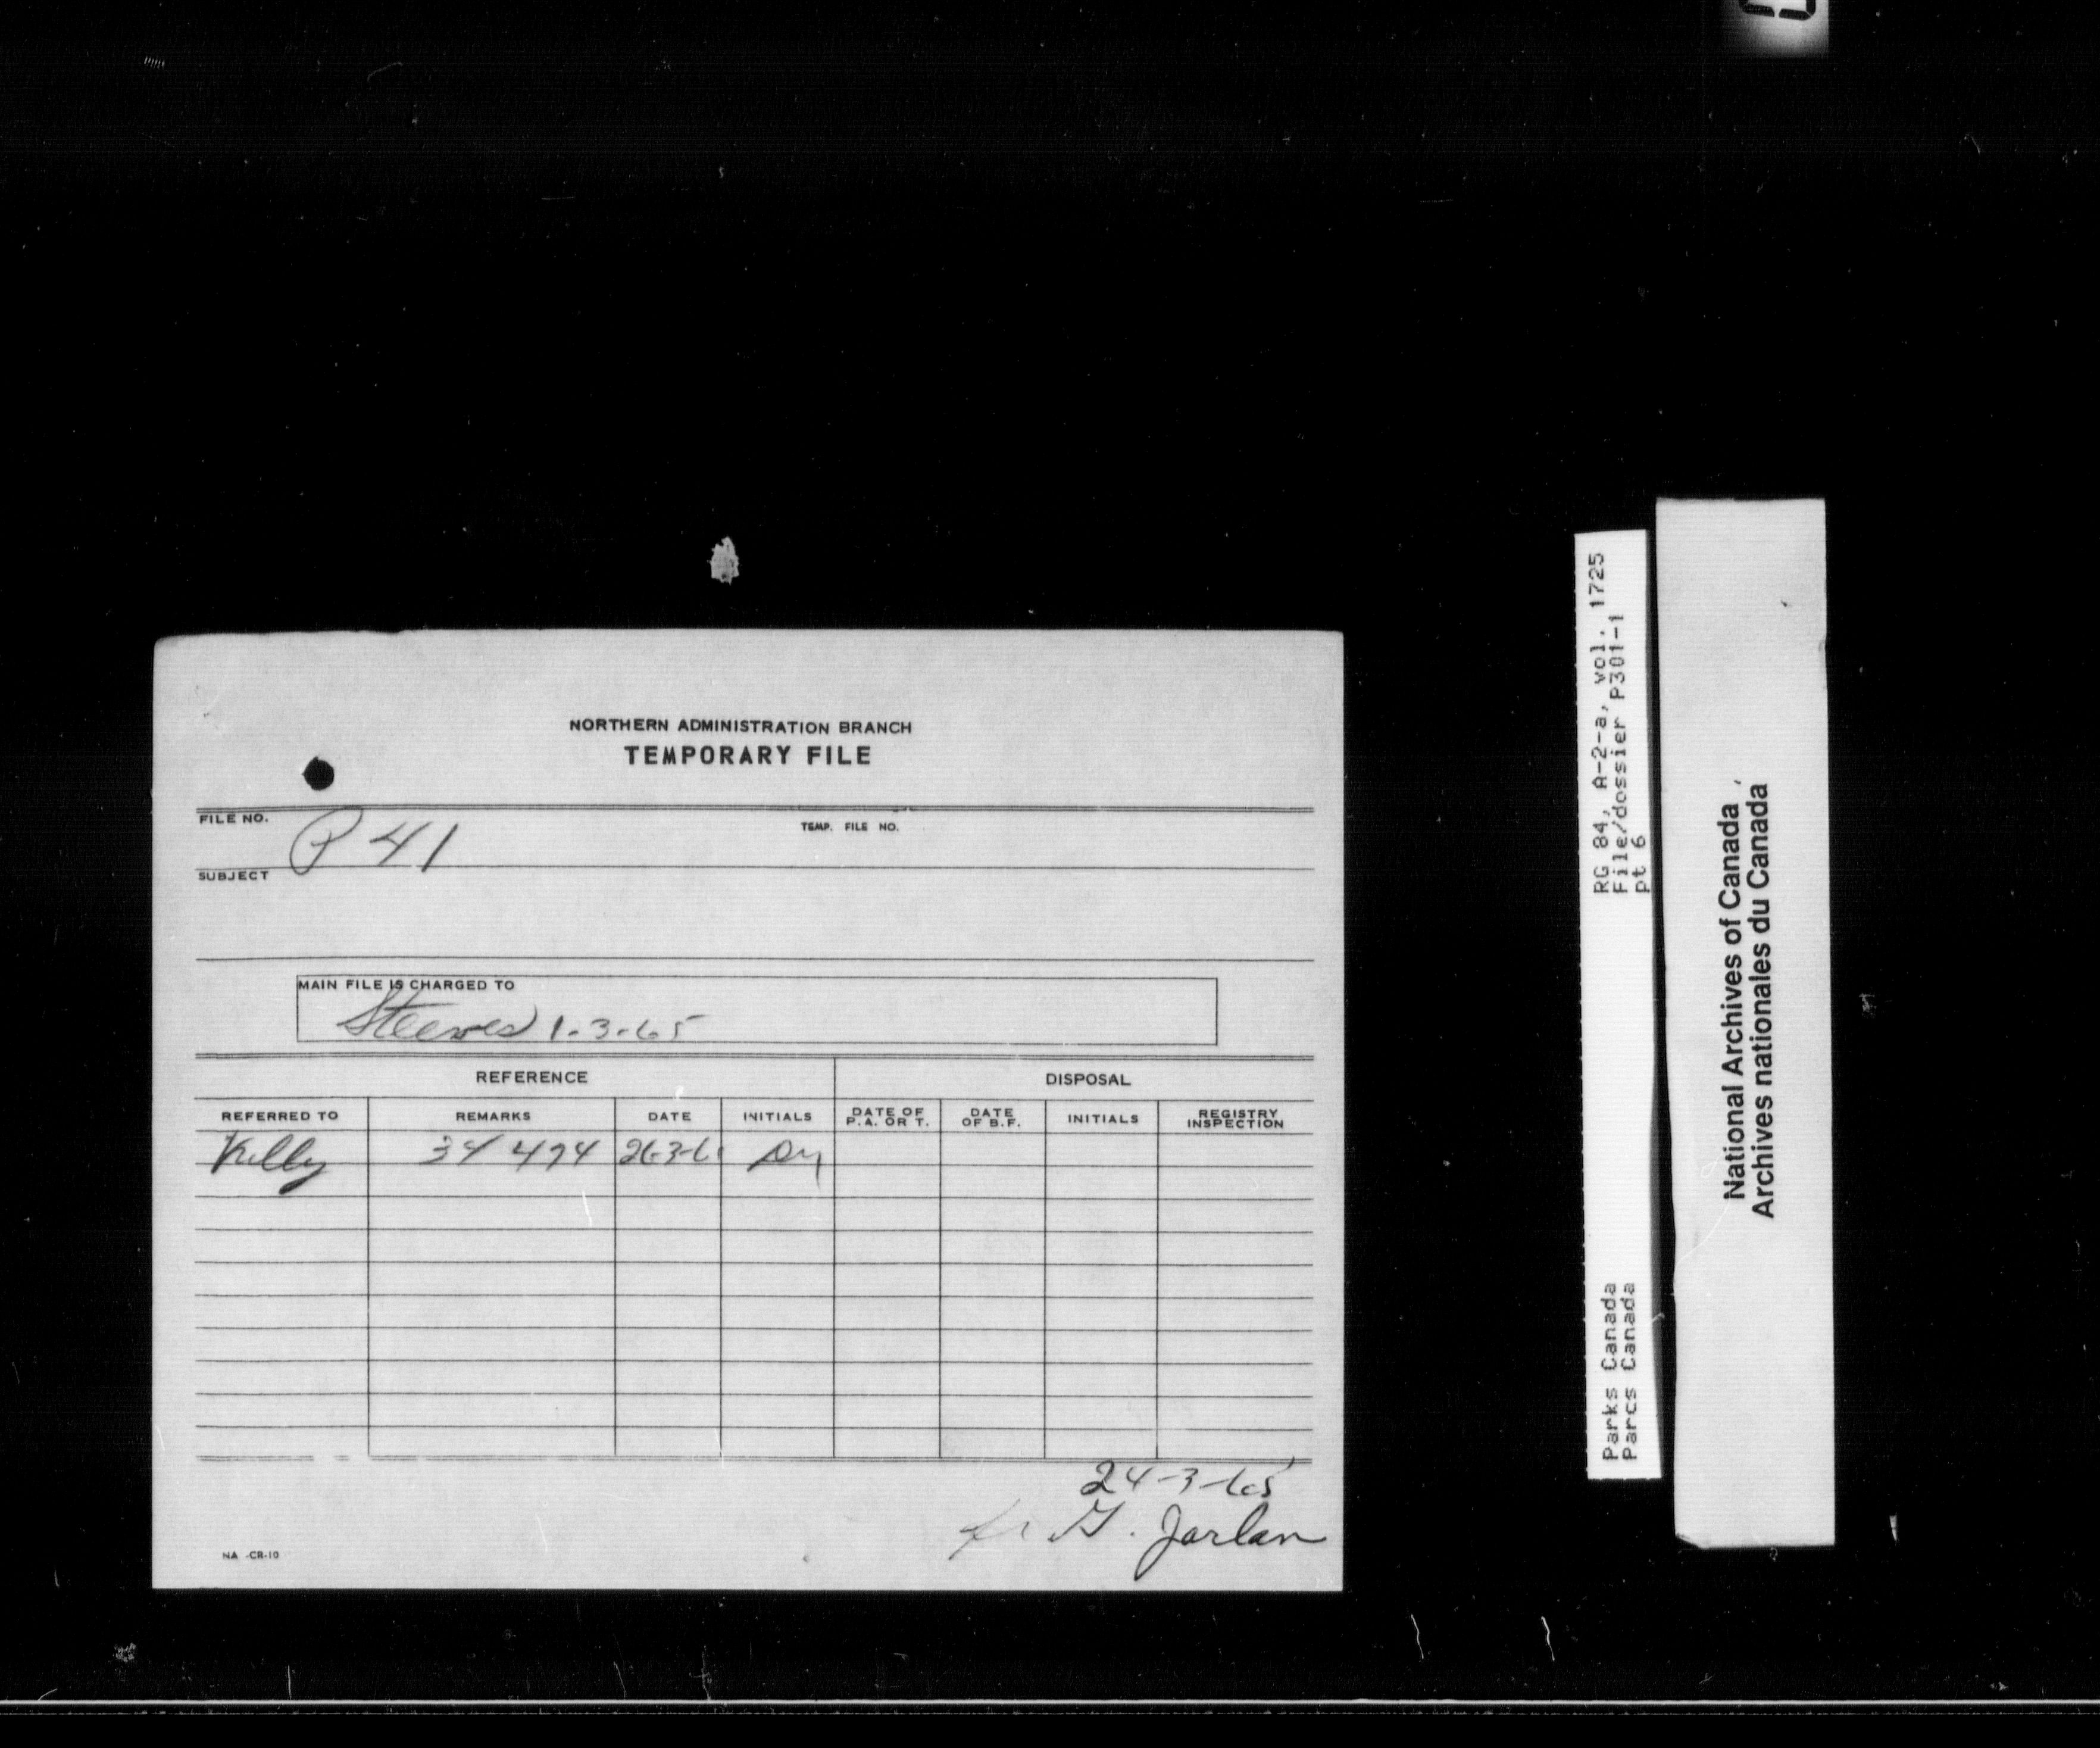 NORTHERN ADMINISTRATION BRANCH
TEMPORARY FILE
FILE NO. P 41 TEMP. FILE NO.
SUBJECT
MAIN FILE IS CHARGED TO
Steeves 1-3-65
REFERENCE DISPOSAL
REFERRED TO REMARKS DATE INITIALS DATE OF P.A. OR T. DATE OF B.F. INITIALS REGISTRY INSPECTION
Kelly 34 474
24-3-65
G. Jarlan
NA -CR-10
RG 84, A-2-a, vol. 1725
File/dossier P301-1
pt 6
Parks Canada
Parcs Canada
National Archives of Canada
Archives nationales du Canada